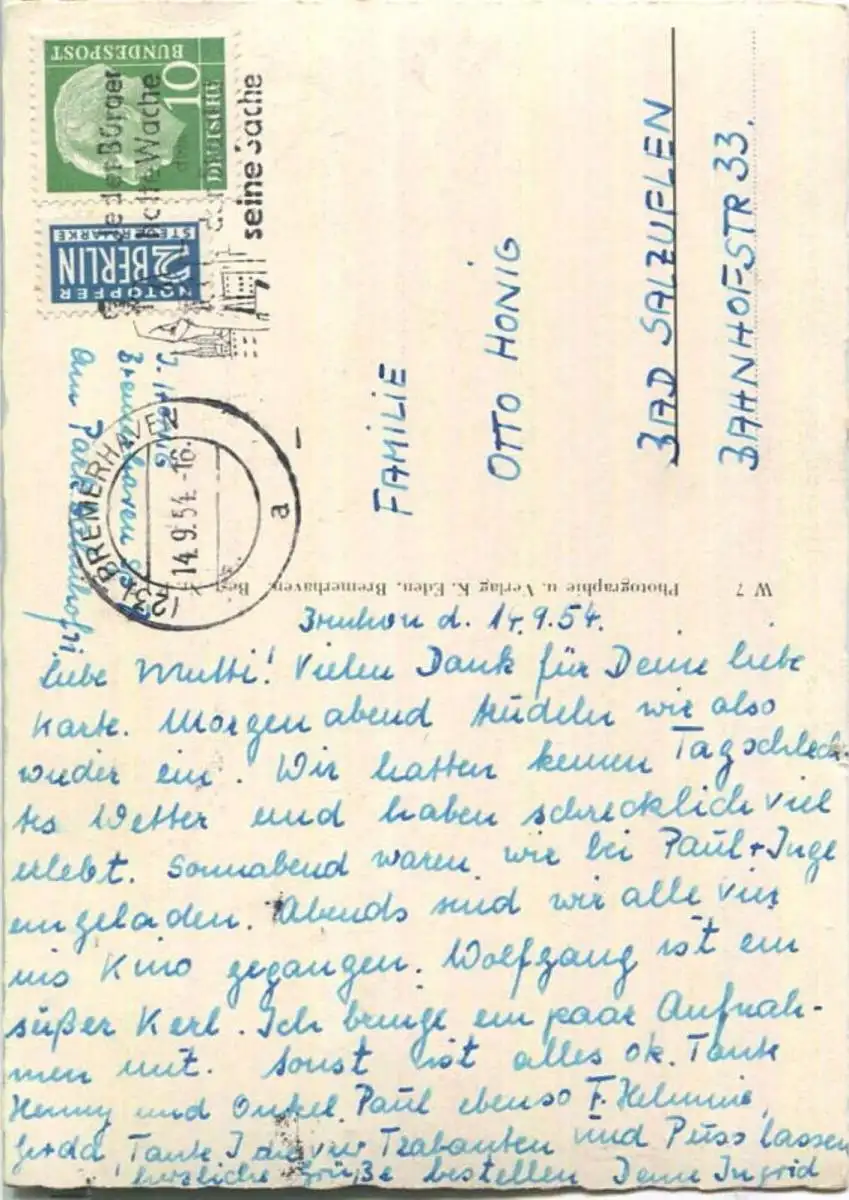 DEUTSCHE
BUNDESPOST
10
NOTOPFER
2 BERLIN
STEUERMARKE
Jeder Bürger
seine Sache
(23) BREMERHAVEN
14.9.54.-16
a
J. Honig
Bremerhaven
Am
FAMILIE
OTTO HONIG
BAD SALZUFLEN
BAHNHOFSTR 33.
W 7 Photographie u. Verlag K. Eden, Bremerhaven.
d. 14.9.54.
Liebe Mutti! Vielen Dank für Deine liebe
Karte. Morgen abend trudeln wir also
wieder ein. Wir hatten keinen Tag schlech-
tes Wetter und haben schrecklich viel
erlebt. Sonnabend waren wir bei Paul + Inge
eingeladen. Abends sind wir alle vier
ins Kino gegangen. Wolfgang ist ein
süßer Kerl. Ich bringe ein paar Aufnah-
men mit. Sonst ist alles ok. Tante
Henny und Onkel Paul ebenso F. Helmine,
Gerda, Tante vier Trabanten und Puss lassen
herzliche Grüße bestellen Deine Ingrid